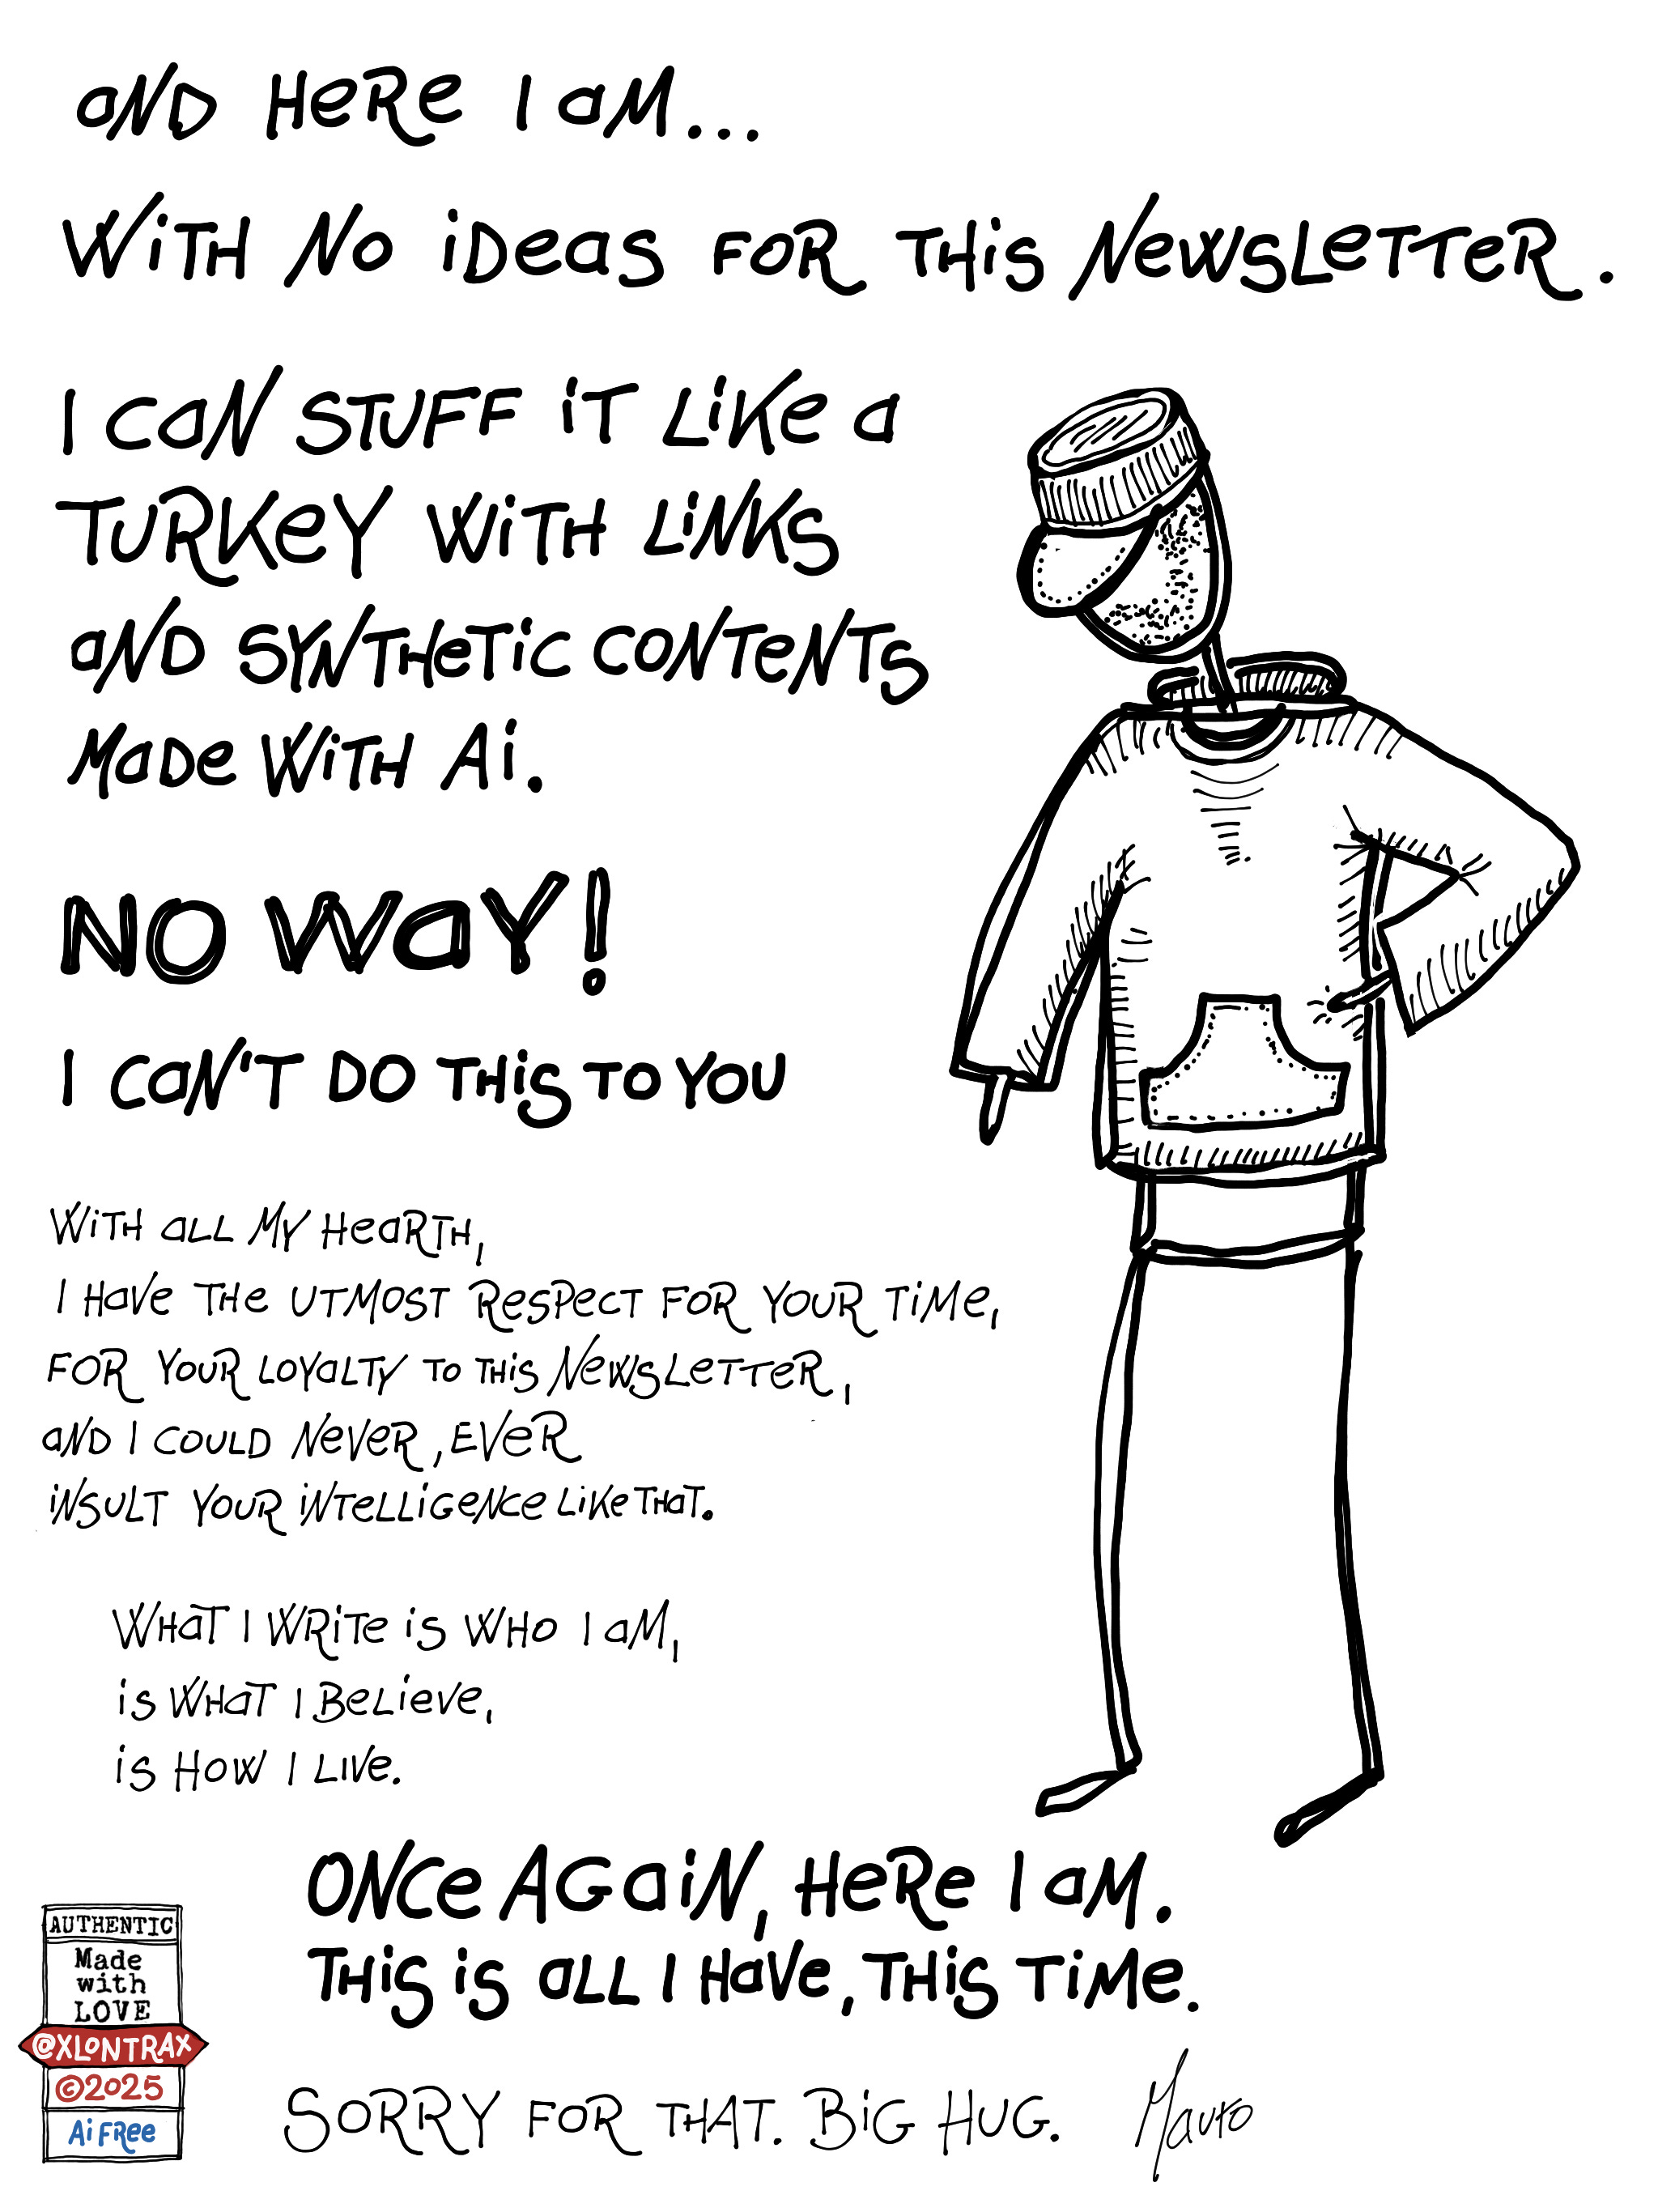 AND HERE I AM...
WITH NO IDEAS FOR THIS NEWSLETTER.
I CAN STUFF IT LIKE A
TURKEY WITH LINKS
AND SYNTHETIC CONTENTS
MADE WITH Ai.
NO WAY!
I CAN'T DO THIS TO YOU
WITH ALL MY HEARTH,
I HAVE THE UTMOST RESPECT FOR YOUR TIME,
FOR YOUR LOYALTY TO THIS NEWSLETTER,
AND I COULD NEVER, EVER
INSULT YOUR INTELLIGENCE LIKE THAT.
WHAT I WRITE IS WHO I AM,
IS WHAT I BELIEVE,
IS HOW I LIVE.
ONCE AGAIN, HERE I AM.
THIS IS ALL I HAVE, THIS TIME.
SORRY FOR THAT. BIG HUG. Mauro
AUTHENTIC
Made
with
LOVE
@XLONTRAX
©2025
Ai FREE